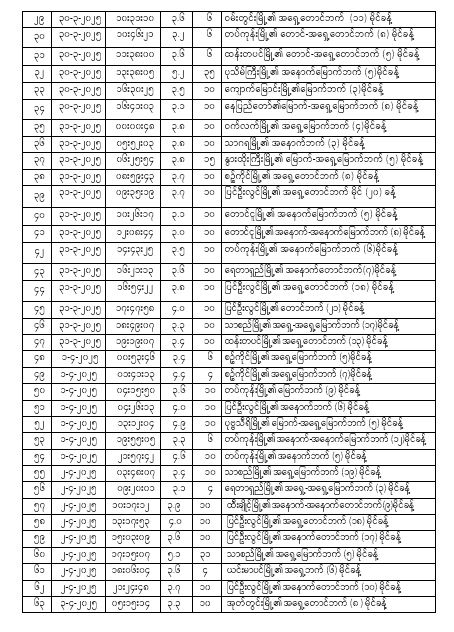 ၂၉ ၃၀-၃-၂၀၂၅ ၁၀:၃၅:၁၀ ၃.၆ ၆ ဝမ်းတွင်းမြို့၏ အရှေ့တောင်ဘက် (၁၁) မိုင်ခန့်
၃၀ ၃၀-၃-၂၀၂၅ ၁၀:၄၆:၂၁ ၃.၂ ၆ တပ်ကုန်းမြို့၏ တောင်-အရှေ့တောင်ဘက် (၈) မိုင်ခန့်
၃၁ ၃၀-၃-၂၀၂၅ ၁၁:၃၈:၀၀ ၃.၆ ၆ ထန်းတပင်မြို့၏ တောင်-အရှေ့တောင်ဘက် (၅) မိုင်ခန့်
၃၂ ၃၀-၃-၂၀၂၅ ၁၃:၃၈:၀၅ ၅.၂ ၃၅ ပုသိမ်ကြီးမြို့၏ အနောက်မြောက်ဘက် (၅)မိုင်ခန့်
၃၃ ၃၀-၃-၂၀၂၅ ၁၆:၃၀:၂၅ ၃.၅ ၁၀ ကျောက်မြောင်းမြို့၏မြောက်ဘက် (၃)မိုင်ခန့်
၃၄ ၃၀-၃-၂၀၂၅ ၁၆:၄၁:၀၃ ၃.၁ ၁၀ နေပြည်တော်၏မြောက်-အရှေ့မြောက်ဘက် (၈) မိုင်ခန့်
၃၅ ၃၁-၃-၂၀၂၅ ၀၀:၀၀:၄၈ ၃.၈ ၁၀ ဝက်လက်မြို့၏ အရှေ့တောင်ဘက် (၄)မိုင်ခန့်
၃၆ ၃၁-၃-၂၀၂၅ ၀၅:၅၂:၀၃ ၃.၈ ၁၀ သာဂရမြို့၏ အနောက်ဘက် (၃) မိုင်ခန့်
၃၇ ၃၁-၃-၂၀၂၅ ၀၆:၂၅:၅၄ ၃.၈ ၁၅ နွားထိုးကြီးမြို့၏ မြောက်-အရှေ့မြောက်ဘက် (၅) မိုင်ခန့်
၃၈ ၃၁-၃-၂၀၂၅ ၀၈:၅၉:၄၃ ၃.၇ ၁၀ စဉ့်ကိုင်မြို့၏ အရှေ့တောင်ဘက် (၈) မိုင်ခန့်
၃၉ ၃၁-၃-၂၀၂၅ ၀၉:၃၅:၁၉ ၃.၇ ၁၀ ပြင်ဦးလွင်မြို့၏ အရှေ့တောင်ဘက် မိုင် (၂၀) ခန့်
၄၀ ၃၁-၃-၂၀၂၅ ၁၀:၂၆:၁၇ ၃.၁ ၁၀ တောင်ငူမြို့၏ အနောက်မြောက်ဘက် (၅) မိုင်ခန့်
၄၁ ၃၁-၃-၂၀၂၅ ၁၂:၀၈:၄၄ ၃.၀ ၁၀ တောင်ငူမြို့၏ အနောက်-အနောက်မြောက်ဘက် (၈)မိုင်ခန့်
၄၂ ၃၁-၃-၂၀၂၅ ၁၄:၄၃:၂၅ ၃.၅ ၁၀ တပ်ကုန်းမြို့၏ အနောက်မြောက်ဘက် (၆)မိုင်ခန့်
၄၃ ၃၁-၃-၂၀၂၅ ၁၆:၂၁:၁၃ ၃.၆ ၁၀ ရေတာရှည်မြို့၏ အနောက်တောင်ဘက်(၇)မိုင်ခန့်
၄၄ ၃၁-၃-၂၀၂၅ ၁၆:၅၄:၂၂ ၃.၈ ၁၀ ပြင်ဦးလွင်မြို့၏ အရှေ့တောင်ဘက် (၁၈) မိုင်ခန့်
၄၅ ၃၁-၃-၂၀၂၅ ၁၇:၄၇:၅၈ ၄.၀ ၁၀ ပြင်ဦးလွင်မြို့၏ တောင်ဘက် (၂၁) မိုင်ခန့်
၄၆ ၃၁-၃-၂၀၂၅ ၁၈:၄၉:၀၇ ၃.၃ ၁၀ သာစည်မြို့၏ အရှေ့-အရှေ့မြောက်ဘက် (၁၇)မိုင်ခန့်
၄၇ ၃၁-၃-၂၀၂၅ ၁၉:၁၉:၀၇ ၃.၄ ၁၀ ထန်းတပင်မြို့၏ အရှေ့တောင်ဘက် (၁၃) မိုင်ခန့်
၄၈ ၁-၄-၂၀၂၅ ၀၀:၅၃:၄၆ ၃.၄ ၆ စဉ့်ကိုင်မြို့၏ အရှေ့မြောက်ဘက် (၅)မိုင်ခန့်
၄၉ ၁-၄-၂၀၂၅ ၀၁:၄၁:၁၃ ၄.၄ ၄ စဉ့်ကိုင်မြို့၏ အရှေ့မြောက်ဘက် (၇)မိုင်ခန့်
၅၀ ၁-၄-၂၀၂၅ ၀၄:၁၅:၅၀ ၃.၆ ၁၀ တပ်ကုန်းမြို့၏ မြောက်ဘက် (၉) မိုင်ခန့်
၅၁ ၁-၄-၂၀၂၅ ၀၄:၂၆:၁၃ ၄.၀ ၁၀ ပြင်ဦးလွင်မြို့၏ အနောက်ဘက် (၆) မိုင်ခန့်
၅၂ ၁-၄-၂၀၂၅ ၁၃:၁၂:၀၄ ၄.၉ ၁၀ ပုဗ္ဗသီရိမြို့၏ မြောက်-အရှေ့မြောက်ဘက် (၅) မိုင်ခန့်
၅၃ ၁-၄-၂၀၂၅ ၁၉:၅၅:၀၅ ၃.၃ ၆ တပ်ကုန်းမြို့၏အနောက်-အနောက်မြောက်ဘက် (၁၂)မိုင်ခန့်
၅၄ ၁-၄-၂၀၂၅ ၂၁:၅၇:၄၂ ၄.၆ ၁၀ တပ်ကုန်းမြို့၏ အနောက်ဘက် (၅) မိုင်ခန့်
၅၅ ၂-၄-၂၀၂၅ ၀၃:၄၈:၀၇ ၃.၄ ၁၀ သာစည်မြို့၏ အရှေ့မြောက်ဘက် (၁၉) မိုင်ခန့်
၅၆ ၂-၄-၂၀၂၅ ၀၉:၂၀:၀၁ ၃.၁ ၄ ရေတာရှည်မြို့၏ အရှေ့-အရှေ့မြောက်ဘက် (၃) မိုင်ခန့်
၅၇ ၂-၄-၂၀၂၅ ၁၀:၁၇:၁၂ ၃.၉ ၁၀ ထီးချိုင့်မြို့၏အနောက်-အနောက်တောင်ဘက်(၉)မိုင်ခန့်
၅၈ ၂-၄-၂၀၂၅ ၁၃:၁၇:၅၃ ၄.၀ ၁၀ ပြင်ဦးလွင်မြို့၏ အရှေ့တောင်ဘက် (၁၈) မိုင်ခန့်
၅၉ ၂-၄-၂၀၂၅ ၁၅:၀၃:၀၉ ၃.၆ ၁၀ ပြင်ဦးလွင်မြို့၏အနောက်တောင်ဘက် (၁၇) မိုင်ခန့်
၆၀ ၂-၄-၂၀၂၅ ၁၇:၁၅:၀၇ ၅.၁ ၃၁ သာစည်မြို့၏ အရှေ့မြောက်ဘက် (၅) မိုင်ခန့်
၆၁ ၂-၄-၂၀၂၅ ၁၈:၀၆:၀၄ ၃.၆ ၄ ယင်းမာပင်မြို့၏ အရှေ့ဘက် (၆) မိုင်ခန့်
၆၂ ၂-၄-၂၀၂၅ ၂၁:၂၄:၄၈ ၃.၇ ၁၀ ပြင်ဦးလွင်မြို့၏ အနောက်တောင်ဘက် (၁၀) မိုင်ခန့်
၆၃ ၃-၄-၂၀၂၅ ၀၅:၁၅:၁၄ ၃.၃ ၁၀ အုတ်တွင်းမြို့၏ အရှေ့တောင်ဘက် (၈ ) မိုင်ခန့်